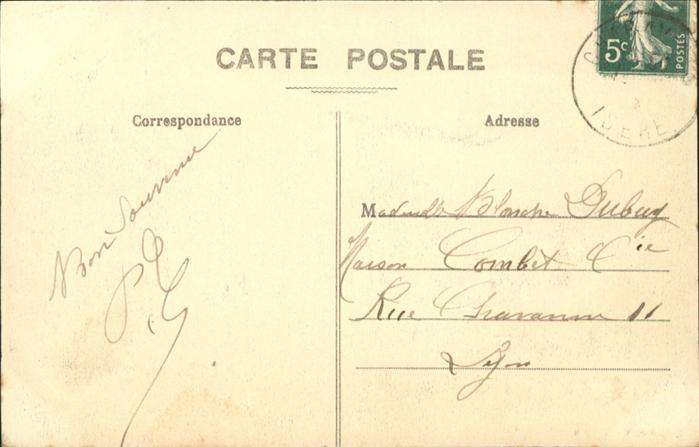 CARTE POSTALE
5c
POSTES
ISERE
Correspondance
Adresse
Bon Souvenir
Madmdlle Blanche Dubuy
Maison Combet Cie
Rue Chavanne 11
Lyon